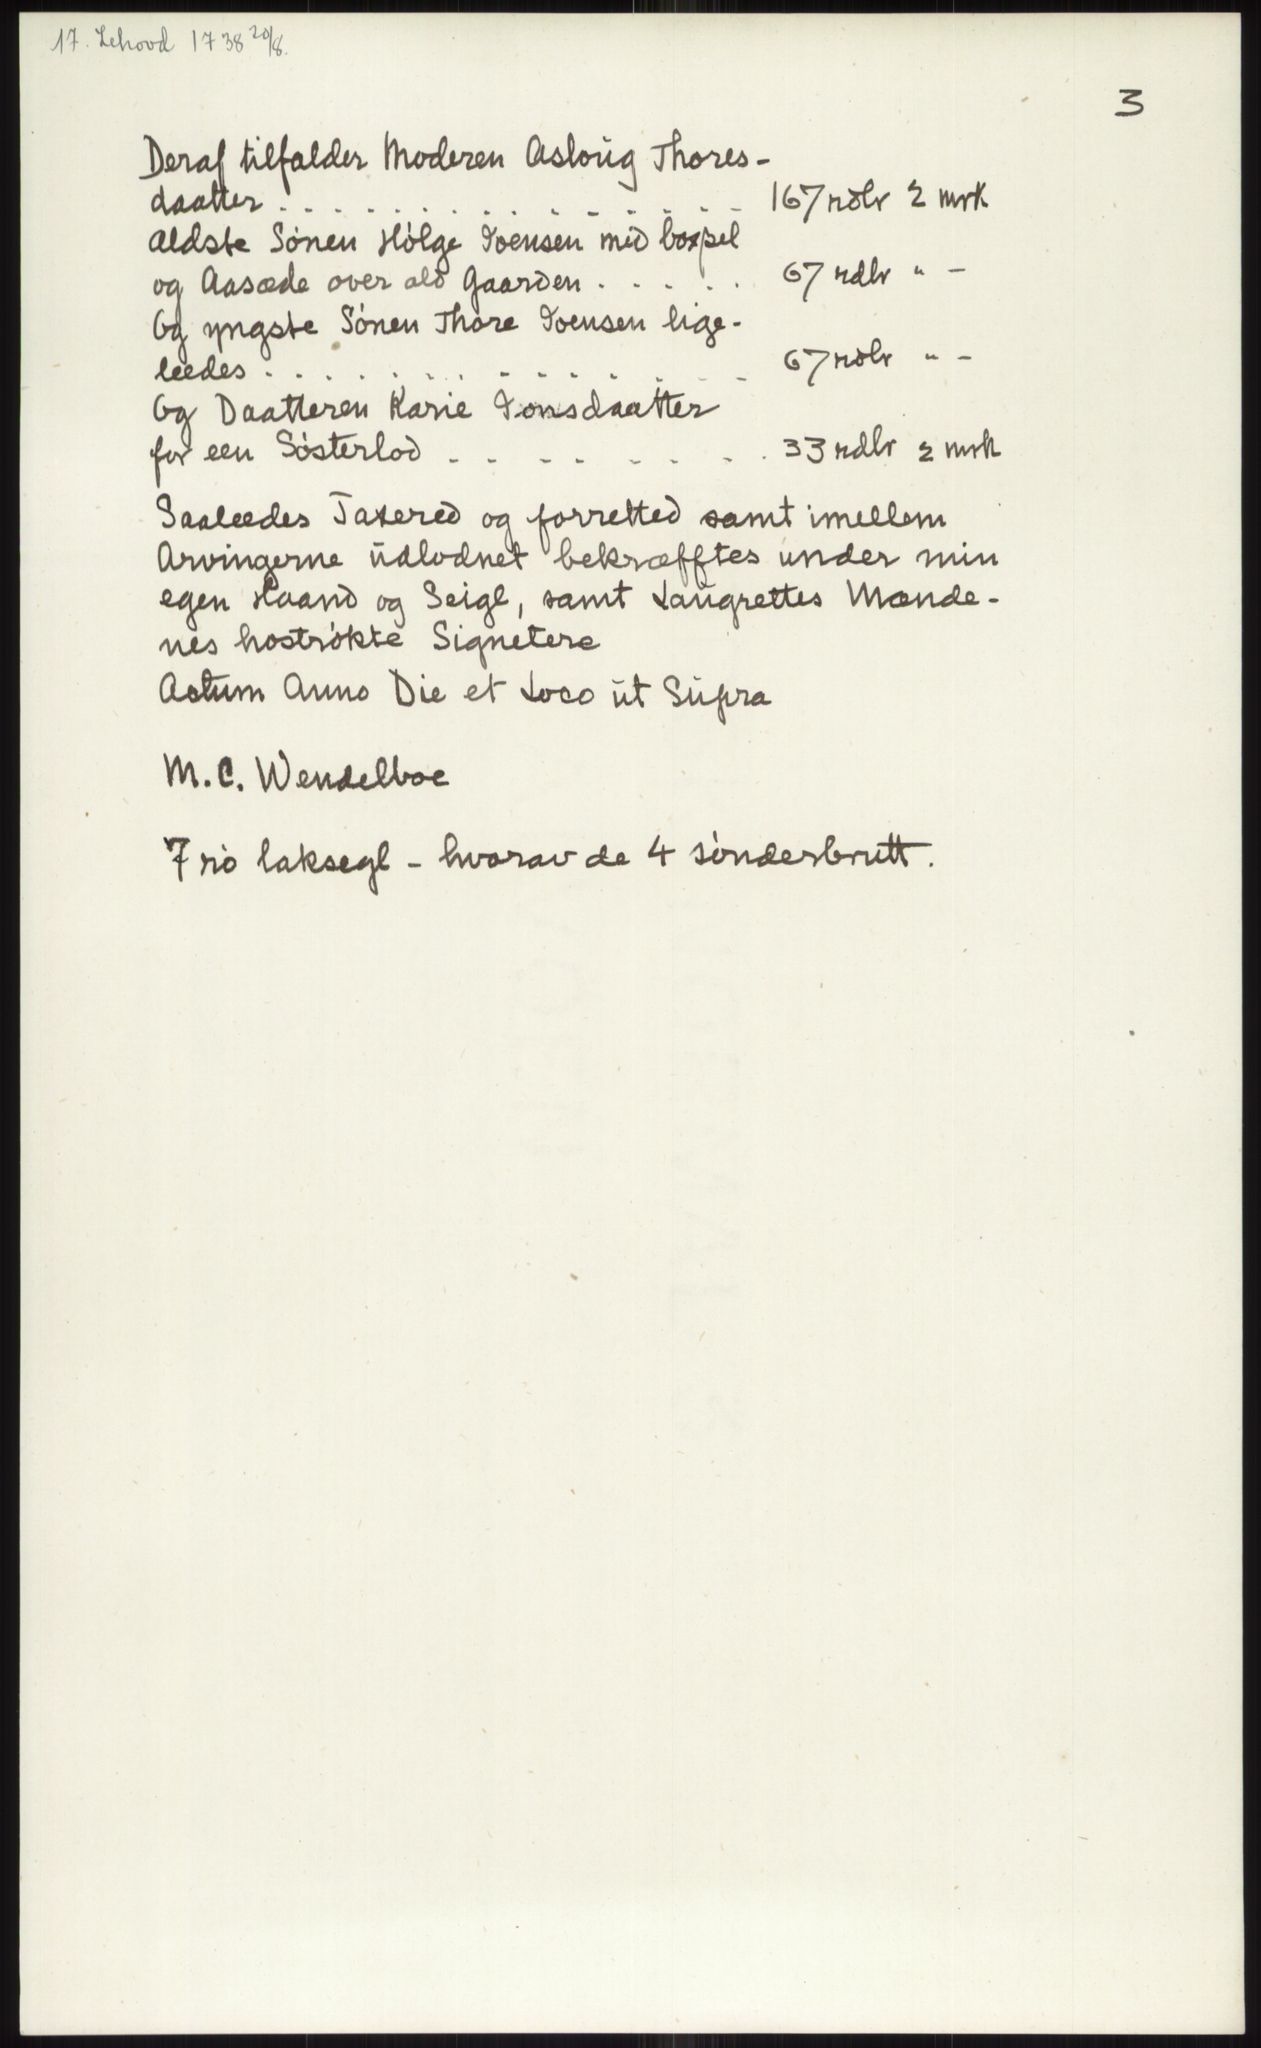 17. Lehovd 1738 20/8.
3
Deraf tilfalder Moderen Asloüg Thores-
daatter . . . . . . . . . . . . . . . . 167 rdlr 2 mrk
Aldste Sónen Hólge Joensen med boxsel
og Aasæde over ald Gaarden . . . . . 67 rdlr " -
Og yngste Sónen Thore Joensen lige-
leedes . . . . . . . . . . . . . . . 67 rdlr " -
Og Daatteren Karie Jonsdaatter
for een Sósterlod . . . . . . . . . 33 rdlr 2 mrk
Saaleedes Taxered og forretted samt imellem
Arvingerne üdlodnet bekræfftes under min
egen Haand og Seigl, samt Laügrettes Mænde-
nes hostrókte Signetere
Actum Anno Die et Loco üt Süpra
M. C. Wendelboe
7 rö laksegl - hvorav de 4 sönderbrutt.